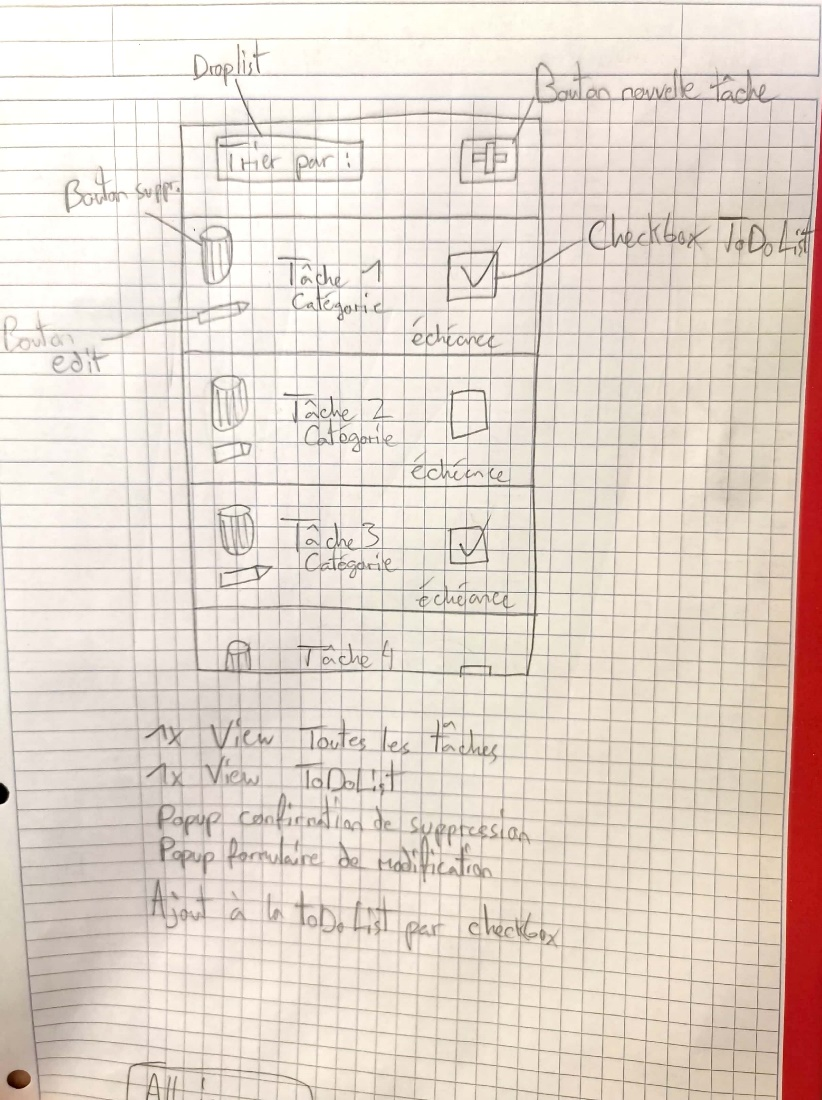 Droplist
Bouton nouvelle tâche
Trier par :
Bouton suppr.
Checkbox ToDoList
Tâche 1
Catégorie
Bouton
edit
échéance
Tâche 2
Catégorie
échéance
Tâche 3
Catégorie
échéance
Tâche 4
1x View Toutes les tâches
1x View ToDoList
Popup confirmation de suppression
Popup formulaire de modification
Ajout à la toDoList par checkbox